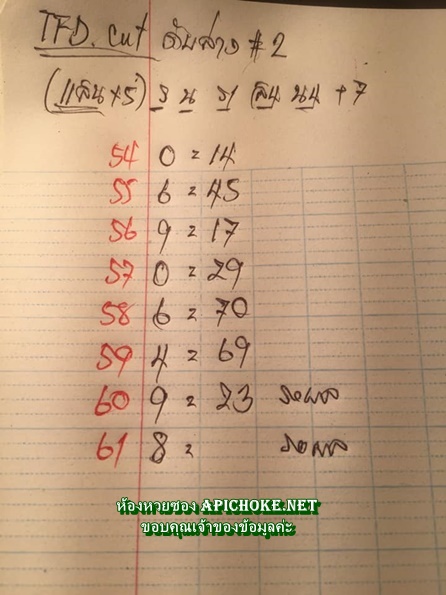 TFD. cut ดับล่าง # 2
(แสน+5) ร น ร +7
54 0 = 14
55 6 = 45
56 9 = 17
57 0 = 29
58 6 = 70
59 4 = 69
60 9 = 23 รอผล
61 8 = รอผล
ห้องหวยซอง APICHOKE.NET
ขอบคุณเจ้าของข้อมูลค่ะ